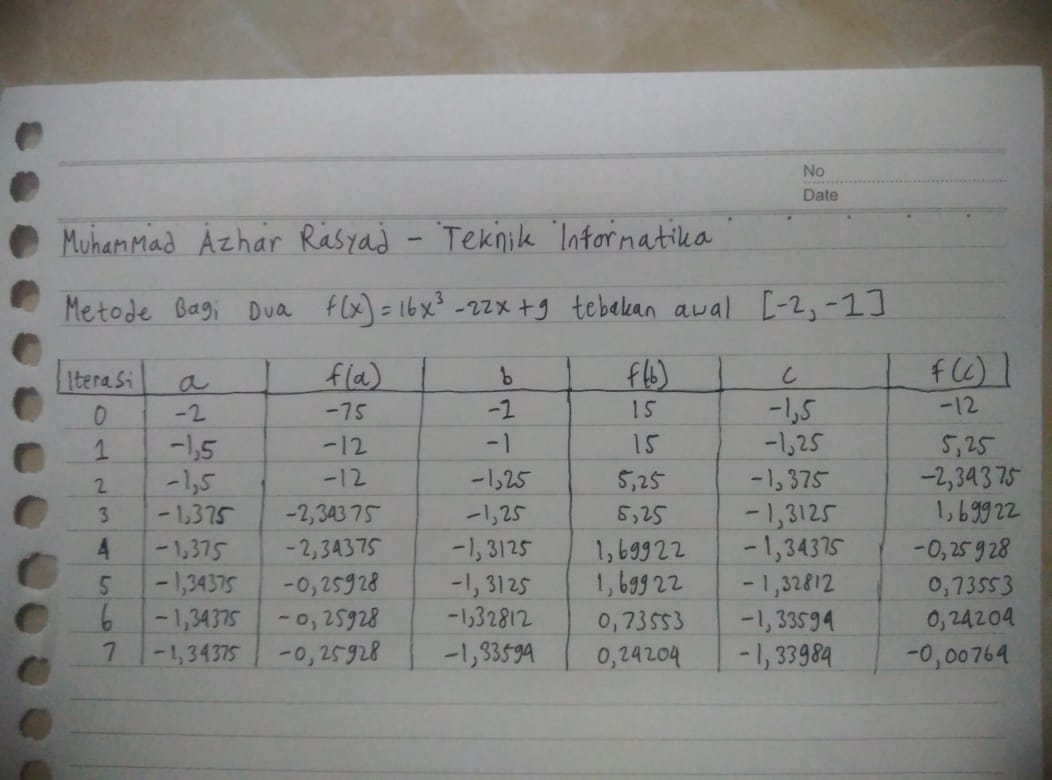 No
Date
Muhammad Azhar Rasyad - Teknik Informatika
Metode Bagi Dua f(x) = 16x³ - 22x + 9 tebakan awal [-2, -1]
Iterasi a f(a) b f(b) c f(c)
0 -2 -75 -1 15 -1,5 -12
1 -1,5 -12 -1 15 -1,25 5,25
2 -1,5 -12 -1,25 5,25 -1,375 -2,34375
3 -1,375 -2,34375 -1,25 5,25 -1,3125 1,69922
4 -1,375 -2,34375 -1,3125 1,69922 -1,34375 -0,25928
5 -1,34375 -0,25928 -1,3125 1,69922 -1,32812 0,73553
6 -1,34375 -0,25928 -1,32812 0,73553 -1,33594 0,24204
7 -1,34375 -0,25928 -1,33594 0,24204 -1,33984 -0,00764